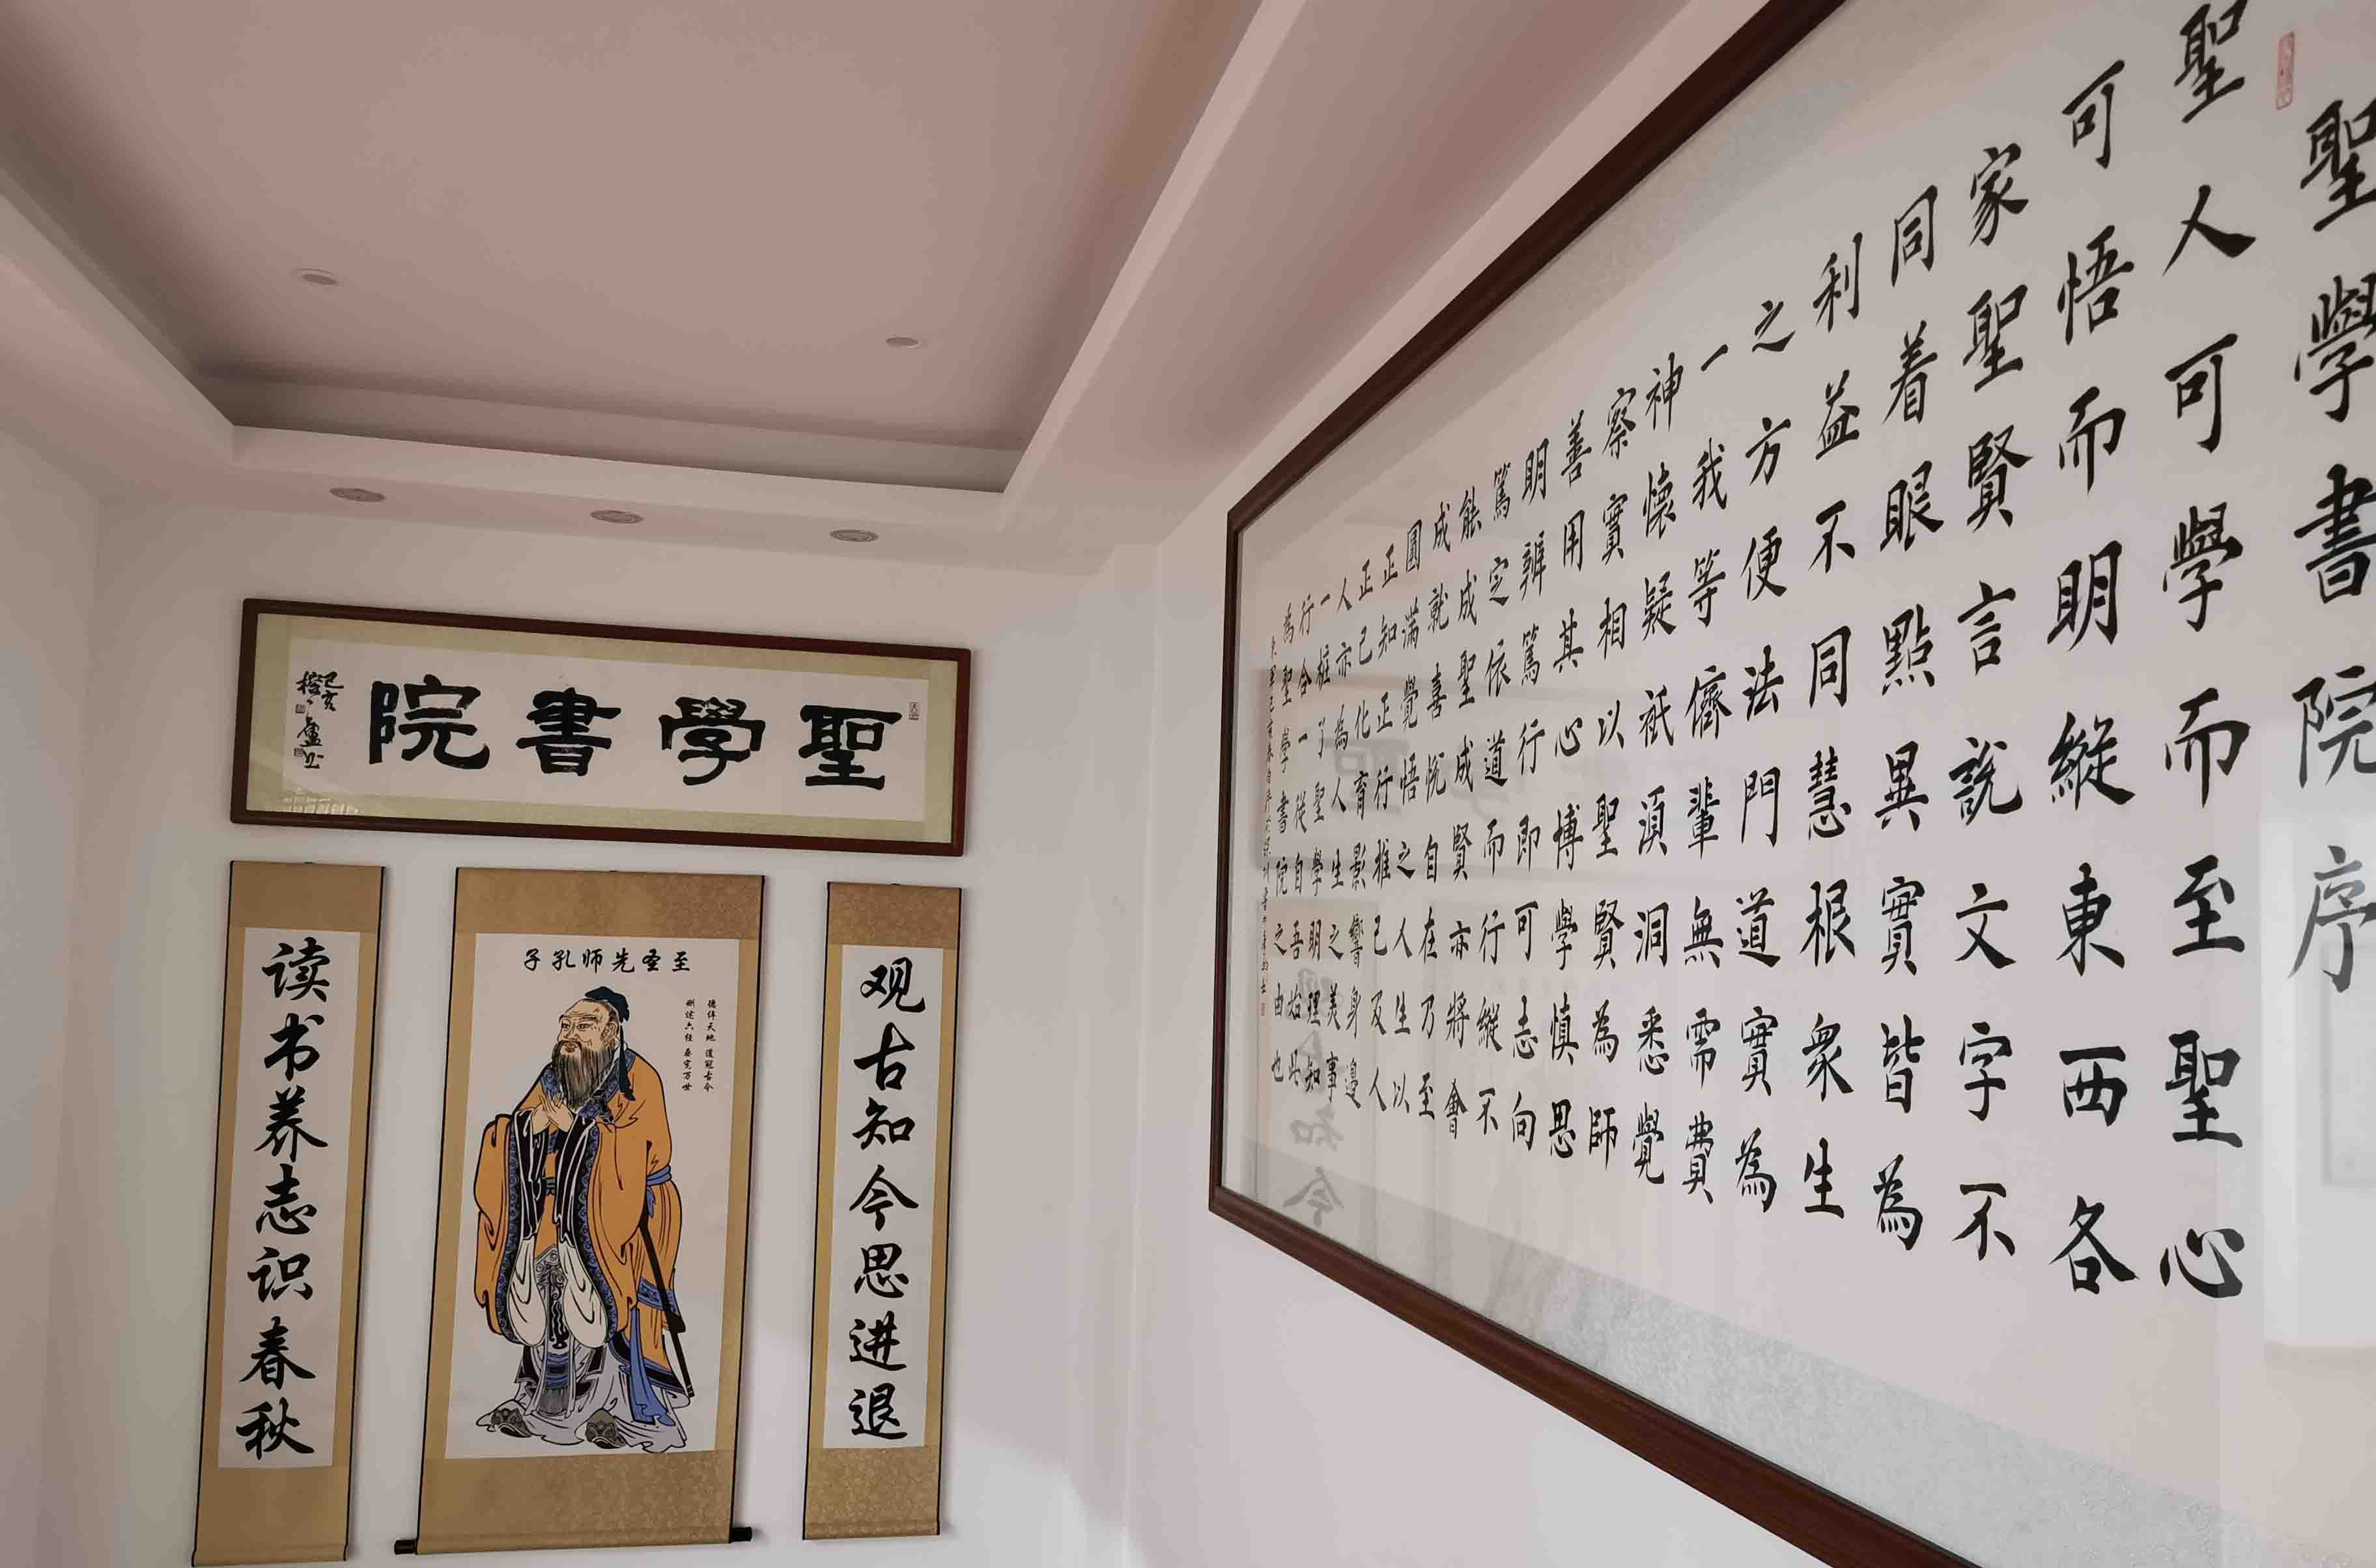 聖學書院
至圣先师孔子
德侔天地 道冠古今
删述六经 垂宪万世
观古知今思进退
读书养志识春秋
聖學書院序
聖人可學而至聖心
可悟而明縱東西各
家聖賢言説文字不
同着眼點異實皆為
利益不同慧根衆生
之方便法門道實為
一我等儕輩無需費
神懷疑祇須洞悉覺
察實相以聖賢為師
善用其心博學慎思
明辨篤行即可志向
篤定依道而行縱不
能成聖成賢亦將會
成就喜悦自在乃至
圓满覺悟之人生以
正知正行推己及人
正己化育影響身邊
人亦為人生之美事
一樁了聖學明理知
行合一從自吾始此
為聖學書院之由也